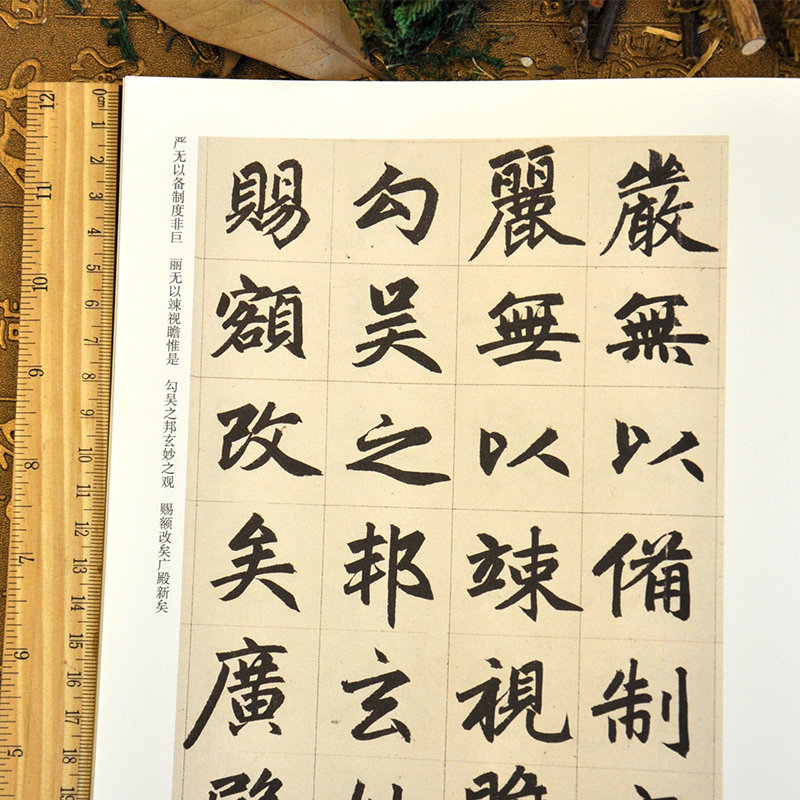 嚴無以備制
麗無以竦視瞻
勾吴之邦玄
賜額改矣廣
严无以备制度非巨 丽无以竦视瞻惟是 勾吴之邦玄妙之观 赐额改矣广殿新矣
12 11 10 9 8 7 6 5
0cm 1 2 3 4 5 6 7 8 9 10 11 12 13 14 15 16 17 18 19